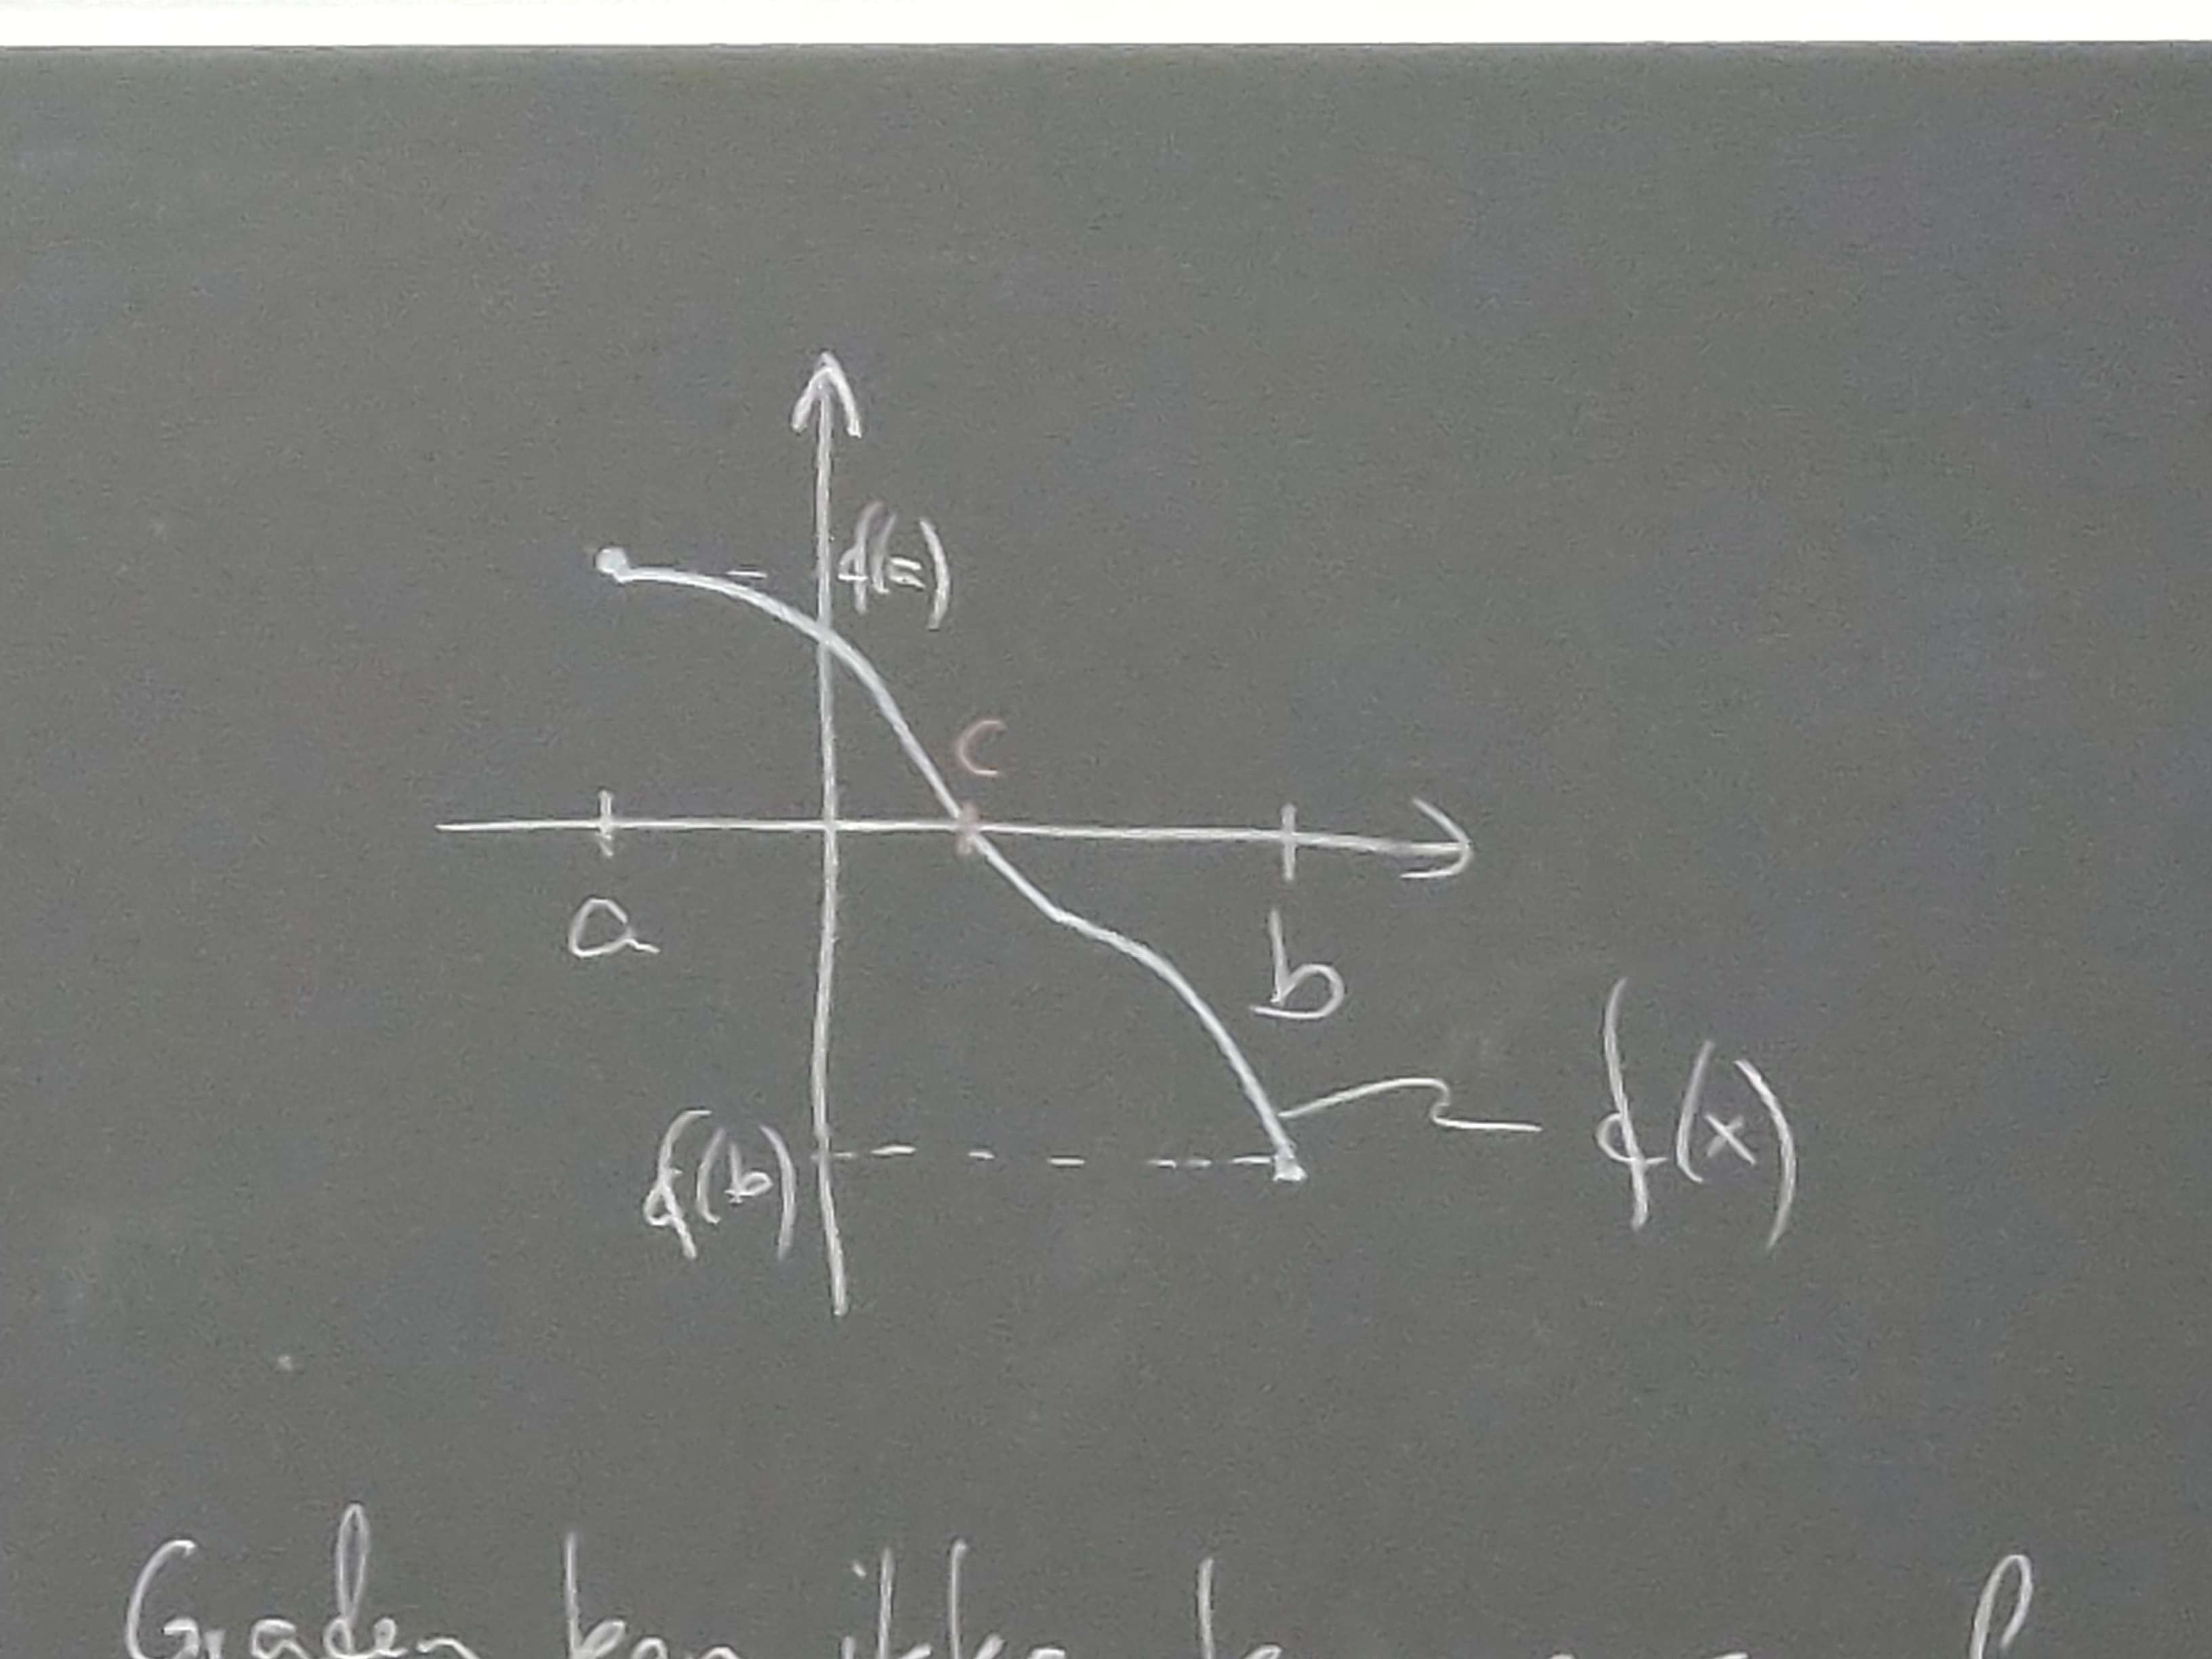 f(a)
C
a
b
f(x)
f(b)
Grafen kan ikke